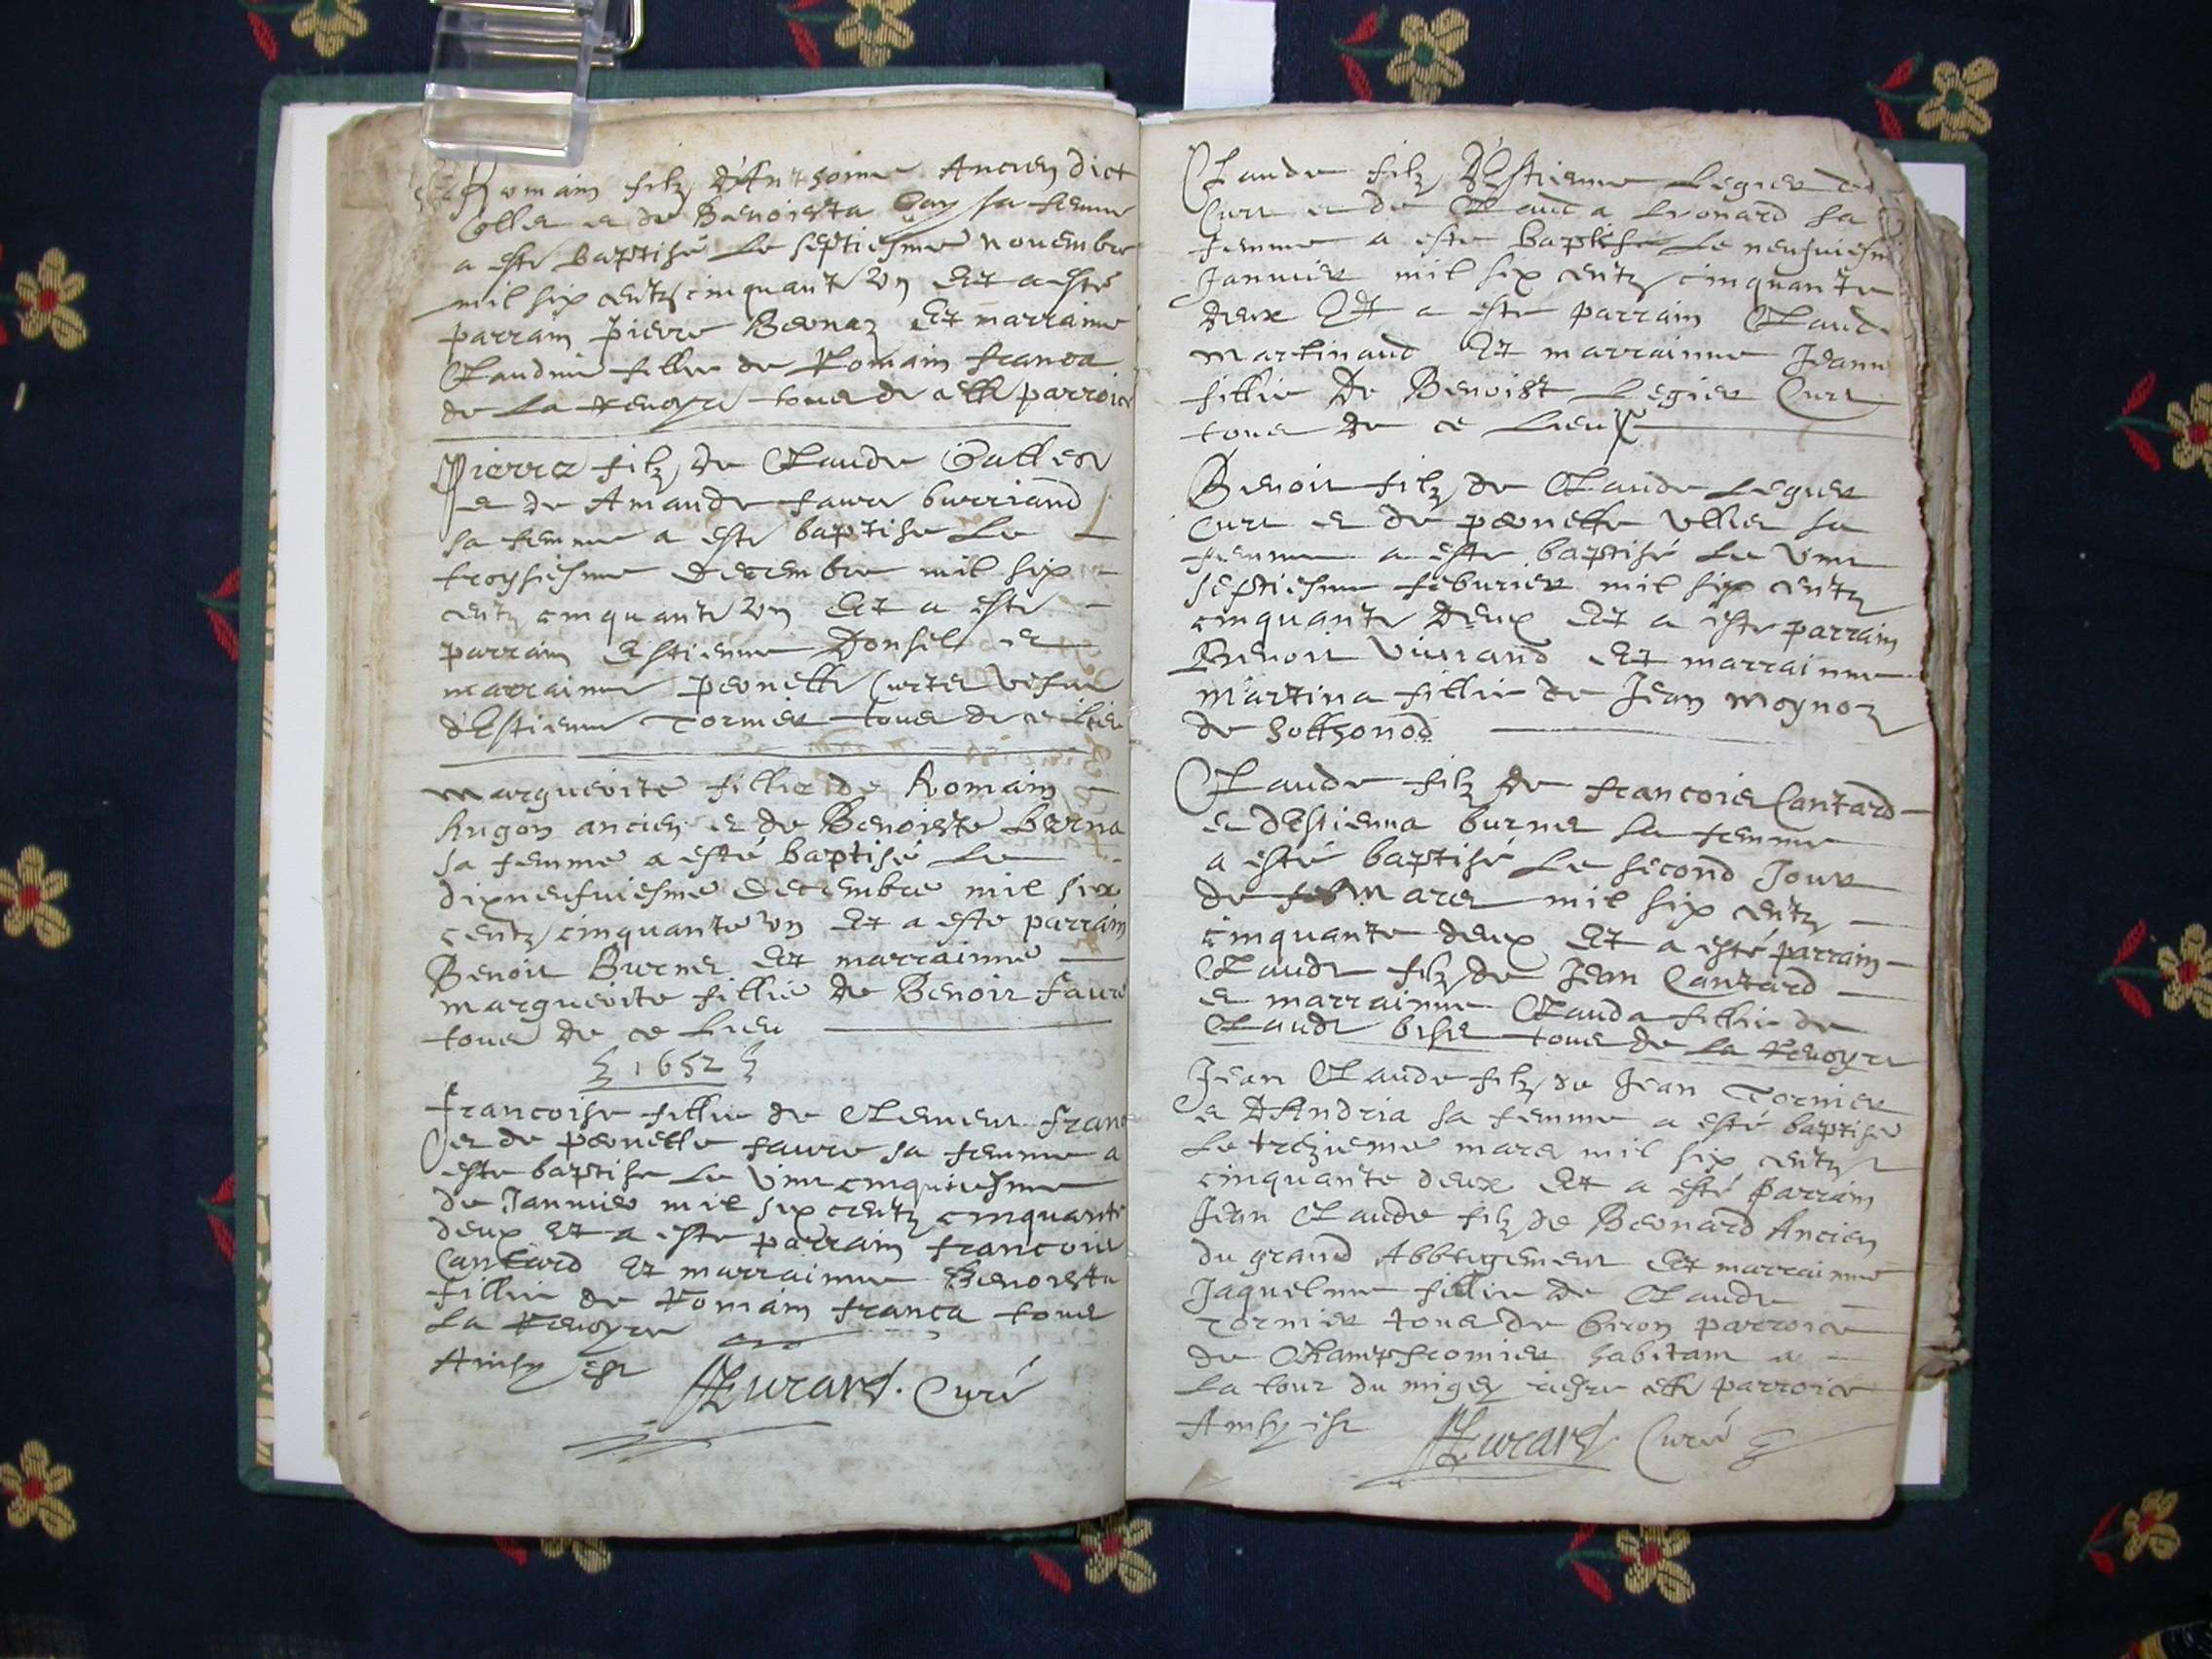 Romain filz d'Anthoine Ancien dict
et de Benoista Gay sa femme
a este baptisé le septiesme novembre
mil six centz cinquante un Et a esté
parrain Pierre Bernaz Et marraine
Claudine fillie de Romain franca
de La tous de parroice
Pierre filz de Claude
et de Amande faure burriand
sa femme a este baptise Le
troysiesme decembre mil six
centz cinquante un Et a este
parrain Estienne Donsel et
marrainne pernette vefue
d'Estienne Tornier tous de ce lieu
Marguerite fillie de Romain
Hugon ancien et de Benoiste berna
sa femme a esté baptisé Le
dixneufuiesme decembre mil six
centz cinquante un Et a esté parrain
Benoit Burnet Et marrainne
marguerite fillie de Benoit faure
tous de ce Lieu
1652
francoise fillie de Clement franc
et de pernette faure sa femme a
este baptise Le vint cinquiesme
de Januier mil six centz cinquante
deux Et a este parrain francois
Cantard Et marrainne Benoista
fillie de Romain franca tous
La
Ainsy est Curé
Claude filz d'Estienne Legier
Curt et de Clauda Leonard sa
femme a este baptise Le neufuiesme
Januier mil six centz cinquante
deux Et a este parrain Claude
martinaud Et marrainne Jeanne
fillie De Benoist Legier Curt
tous de ce Lieu
Benoit filz de Claude Legier
Curt et de pernette sa
femme a este baptisé Le vint
septiesme feburier mil six centz
cinquante deux Et a este parrain
Benoit Et marrainne
Martina fillie de Jean moynoz
de hotthonod
Claude filz de francois Cantard
et dEstienna burnet sa femme
a esté baptisé Le second Jour
de mars mil six centz
cinquante deux Et a esté parrain
Claude filz de Jean Cantard
et marrainne Clauda fillie de
Claude tous de La
Jean Claude filz de Jean Tornier
et dAndria sa femme a esté baptisé
Le trezieme mars mil six centz
cinquante deux Et a esté parrain
Jean Claude filz de Bernard Ancien
du grand Abbergement Et marrainne
Jaquelme fillie de Claude
Tornier tous de Giron parroice
de Champfromier habitant a
La tour du parroice
Ainsy est Curé